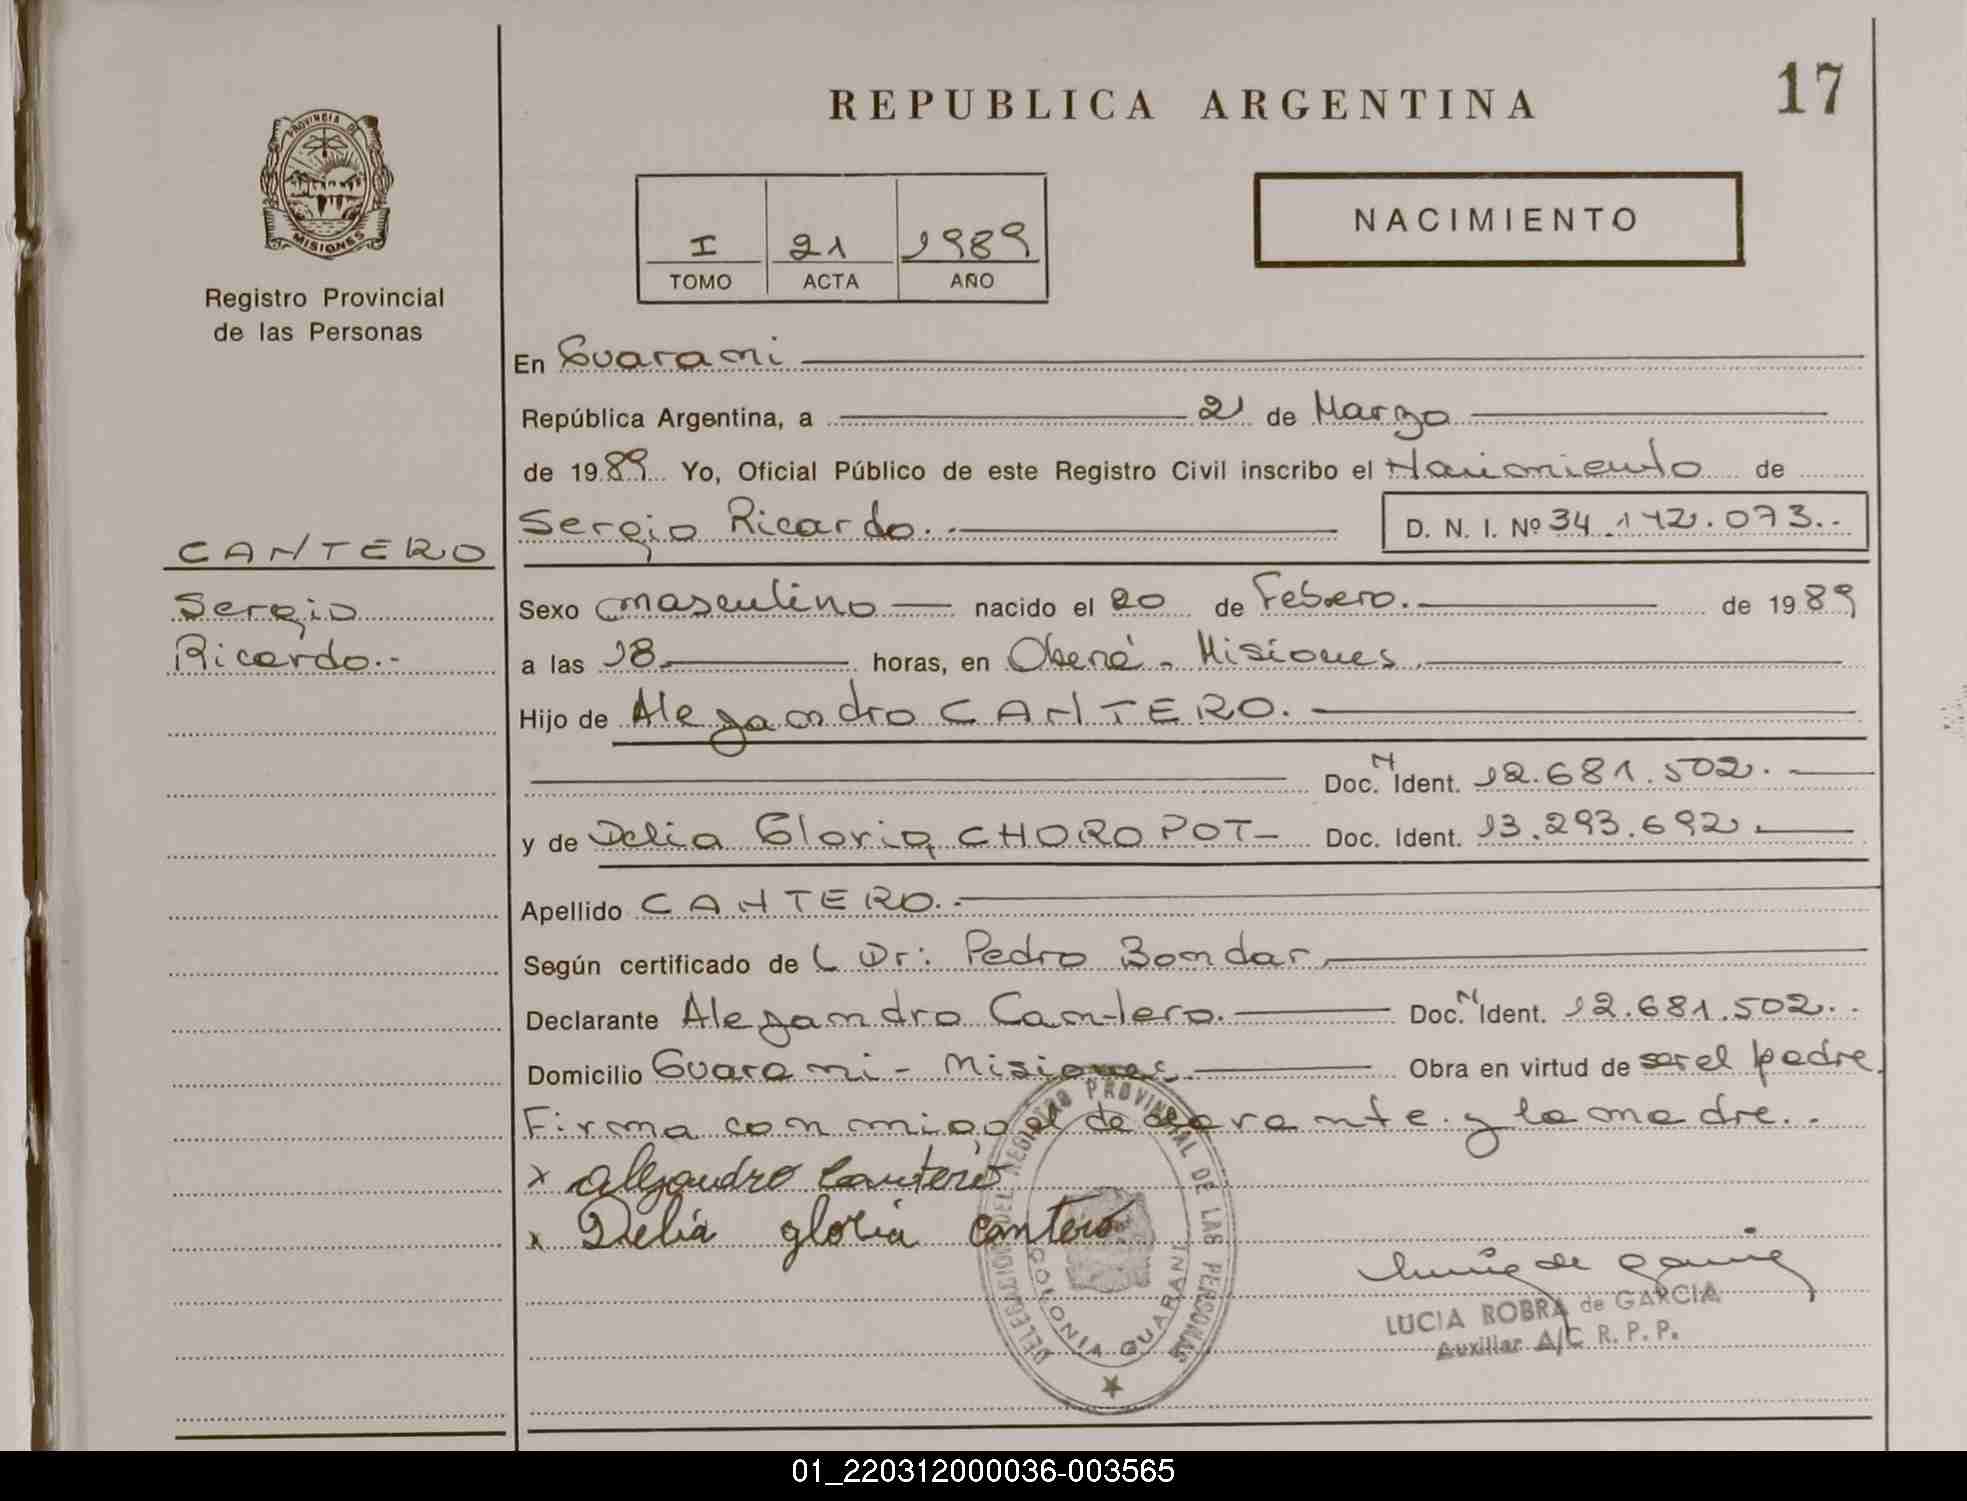 REPUBLICA ARGENTINA
17
PROVINCIA DE
MISIONES
Registro Provincial
de las Personas
I 21 1989
TOMO ACTA AÑO
NACIMIENTO
En Guarani
República Argentina, a 21 de Marzo
de 1989 Yo, Oficial Público de este Registro Civil inscribo el Nacimiento de
Sergio Ricardo.- D. N. I. Nº 34.142.073.-
CANTERO
Sergio
Ricardo.-
Sexo masculino nacido el 20 de Febrero. de 1989
a las 18 horas, en Oberá - Misiones
Hijo de Alejandro CANTERO.
Doc. N Ident. 12.681.502.
y de Delia Gloria CHOROPOT- Doc. Ident. 13.293.692
Apellido CANTERO.-
Según certificado de L Dr: Pedro Bondar
Declarante Alejandro Cantero. Doc. N Ident. 12.681.502.-
Domicilio Guarani - Misiones Obra en virtud de ser el padre.
Firma conmigo el declarante y la madre..
x alejandro Cantero
x Delia gloria cantero
DELEGACION DEL REGISTRO PROVINCIAL DE LAS PERSONAS
COLONIA GUARANI
LUCIA ROBRA de GARCIA
Auxiliar A/C R. P. P.
01_220312000036-003565